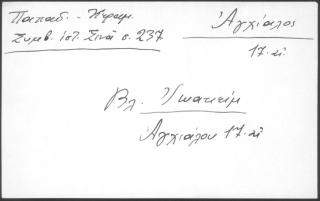 Παπαδ. - Κεραμ.
Συμβ. ἱστ. Σινᾶ σ. 237
Ἀγχίαλος
17. αἰ
Βλ. Ἰωακεὶμ
Ἀγχιάλου 17. αἰ